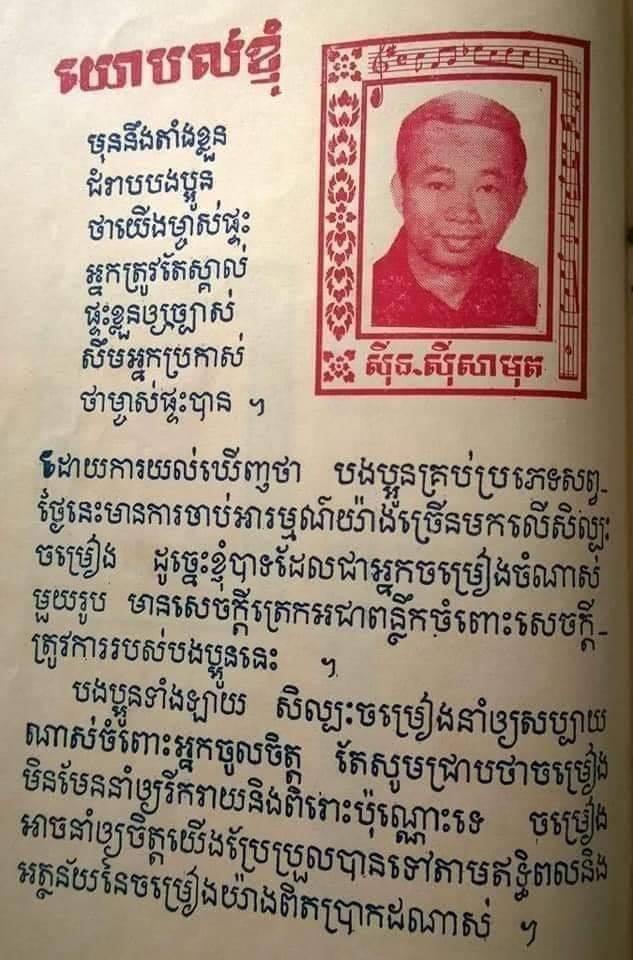 យោបល់ខ្ញុំ
មុននឹងតាំងខ្លួន
ជំរាបបងប្អូន
ថាយើងម្ចាស់ផ្ទះ
អ្នកត្រូវតែស្គាល់
ផ្ទះខ្លួនឲ្យច្បាស់
សឹមអ្នកប្រកាស់
ថាម្ចាស់ផ្ទះបាន ។
ស៊ីន.ស៊ីសាមុត
ដោយការយល់ឃើញថា បងប្អូនគ្រប់ប្រភេទសព្វ-
ថ្ងៃនេះមានការចាប់អារម្មណ៍យ៉ាងច្រើនមកលើសិល្បះ
ចម្រៀង ដូច្នេះខ្ញុំបាទដែលជាអ្នកចម្រៀងចំណាស់
មួយរូប មានសេចក្តីត្រេកអរជាពន្លឹកចំពោះសេចក្តី-
ត្រូវការរបស់បងប្អូននេះ ។
បងប្អូនទាំងឡាយ សិល្បៈចម្រៀងនាំឲ្យសប្បាយ
ណាស់ចំពោះអ្នកចូលចិត្ត តែសូមជ្រាបថាចម្រៀង
មិនមែននាំឲ្យរីករាយនិងពិរោះប៉ុណ្ណោះទេ ចម្រៀង
អាចនាំឲ្យចិត្តយើងប្រែប្រួលបានទៅតាមឥទ្ធិពលនិង
អត្ថន័យនៃចម្រៀងយ៉ាងពិតប្រាកដណាស់ ។